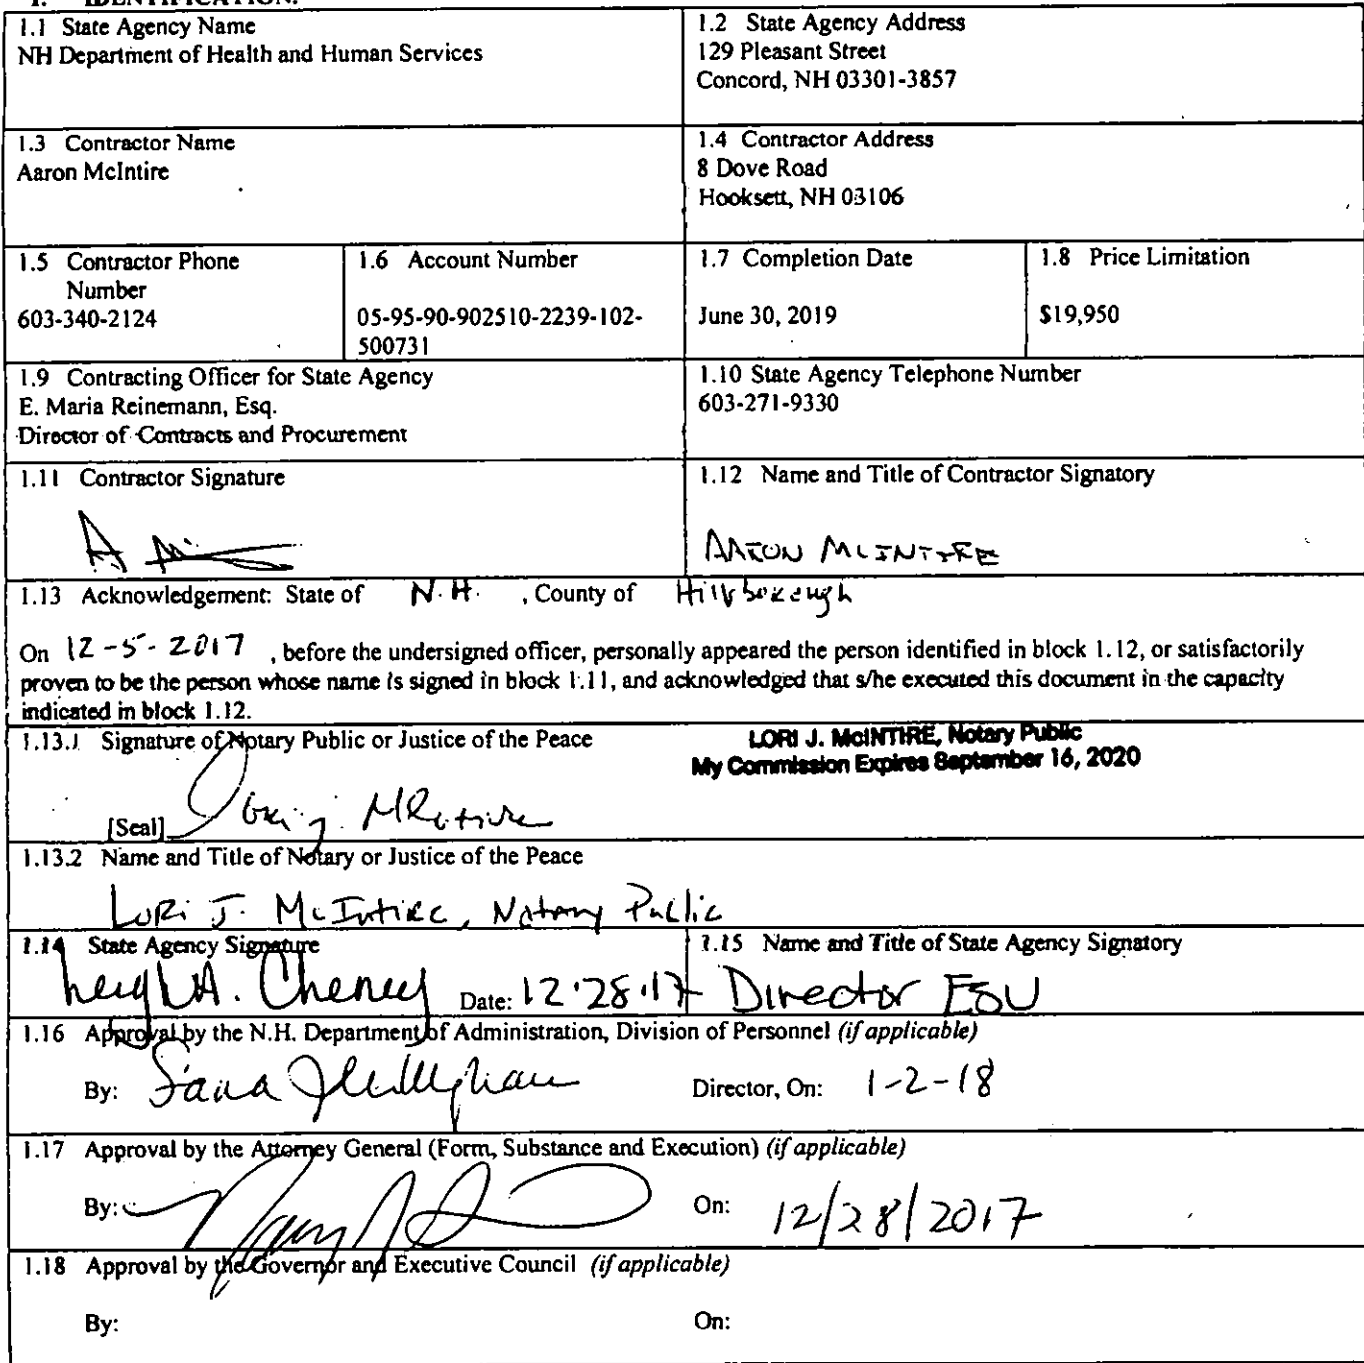 I. IDENTIFICATION.
1.1 State Agency Name
NH Department of Health and Human Services
1.2 State Agency Address
129 Pleasant Street
Concord, NH 03301-3857
1.3 Contractor Name
Aaron McIntire
1.4 Contractor Address
8 Dove Road
Hooksett, NH 03106
1.5 Contractor Phone
Number
603-340-2124
1.6 Account Number
05-95-90-902510-2239-102-
500731
1.7 Completion Date
June 30, 2019
1.8 Price Limitation
$19,950
1.9 Contracting Officer for State Agency
E. Maria Reinemann, Esq.
Director of Contracts and Procurement
1.10 State Agency Telephone Number
603-271-9330
1.11 Contractor Signature
1.12 Name and Title of Contractor Signatory
AARON MCINTIRE
1.13 Acknowledgement: State of N.H. , County of Hillsborough
On 12-5-2017 , before the undersigned officer, personally appeared the person identified in block 1.12, or satisfactorily
proven to be the person whose name is signed in block 1.11, and acknowledged that s/he executed this document in the capacity
indicated in block 1.12.
1.13.1 Signature of Notary Public or Justice of the Peace
LORI J. McINTIRE, Notary Public
My Commission Expires September 16, 2020
[Seal] Lori J. McIntire
1.13.2 Name and Title of Notary or Justice of the Peace
Lori J. McIntire, Notary Public
1.14 State Agency Signature
Cheney Date: 12·28·17
1.15 Name and Title of State Agency Signatory
Director ESU
1.16 Approval by the N.H. Department of Administration, Division of Personnel (if applicable)
By: Director, On: 1-2-18
1.17 Approval by the Attorney General (Form, Substance and Execution) (if applicable)
By: On: 12/28/2017
1.18 Approval by the Governor and Executive Council (if applicable)
By: On: